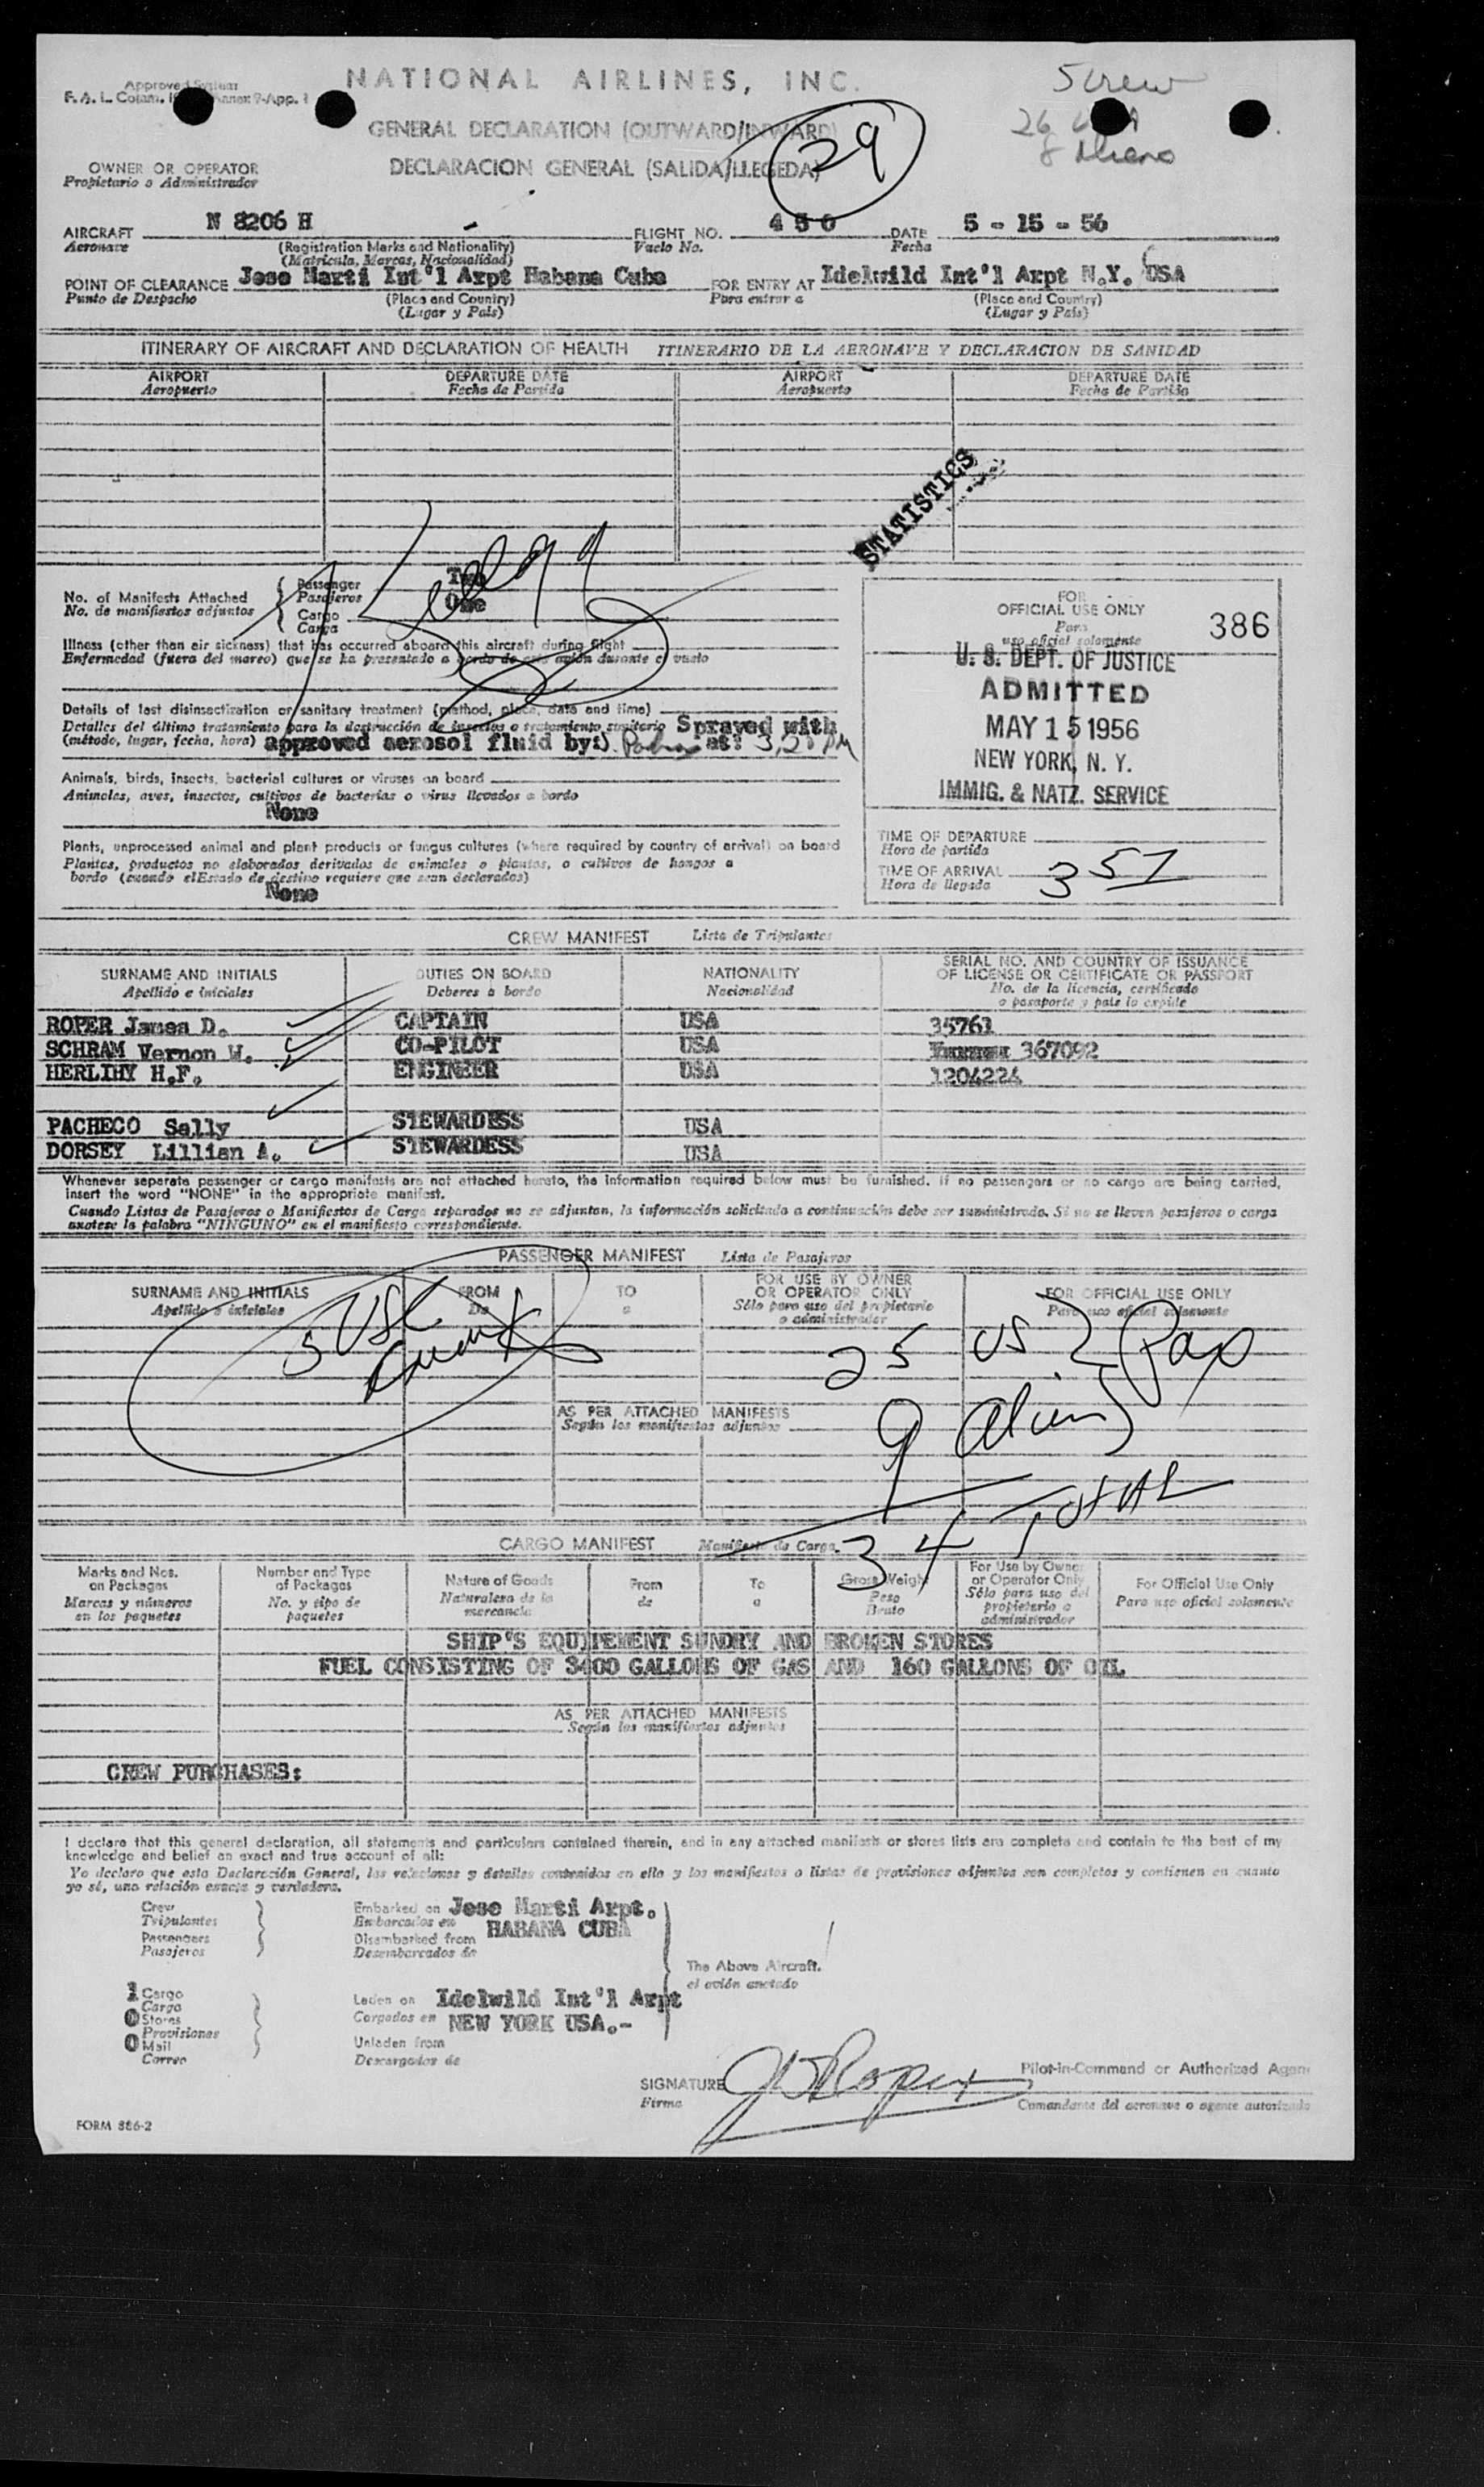 NATIONAL AIRLINES, INC.
5 crew
Approved System
F. A. L. Comm. Annex 9-App. 1
GENERAL DECLARATION (OUTWARD/INWARD)
29
26
8 Aliens
OWNER OR OPERATOR
Propietario o Administrador
DECLARACION GENERAL (SALIDA/LLEGEDA)
AIRCRAFT N 8206 H FLIGHT NO. 450 DATE 5 - 15 - 56
Aeronave (Registration Marks and Nationality) Vuelo No. Fecha
(Matricula, Marcas, Nacionalidad)
POINT OF CLEARANCE Jose Marti Int'l Arpt Habana Cuba FOR ENTRY AT Idelwild Int'l Arpt N.Y. USA
Punto de Despacho (Place and Country) Para entrar a (Place and Country)
(Lugar y País) (Lugar y País)
ITINERARY OF AIRCRAFT AND DECLARATION OF HEALTH ITINERARIO DE LA AERONAVE Y DECLARACION DE SANIDAD
AIRPORT DEPARTURE DATE AIRPORT DEPARTURE DATE
Aeropuerto Fecha de Partida Aeropuerto Fecha de Partida
STATISTICS
No. of Manifests Attached Passenger Two
No. de manifiestos adjuntos Pasajeros
Cargo One
Carga
Illness (other than air sickness) that has occurred aboard this aircraft during flight
Enfermedad (fuera del mareo) que se ha presentado a bordo de este avión durante el vuelo
Details of last disinsectization or sanitary treatment (method, place, date and time)
Detalles del último tratamiento para la destrucción de insectos o tratamiento sanitario Sprayed with
(método, lugar, fecha, hora) approved aerosol fluid by: at:
Animals, birds, insects, bacterial cultures or viruses on board
Animales, aves, insectos, cultivos de bacterias o virus llevados a bordo
None
Plants, unprocessed animal and plant products or fungus cultures (where required by country of arrival) on board
Plantas, productos no elaborados derivados de animales o plantas, o cultivos de hongos a
bordo (cuando el Estado de destino requiere que sean declarados)
None
FOR
OFFICIAL USE ONLY
Para
uso oficial solamente
386
U. S. DEPT. OF JUSTICE
ADMITTED
MAY 15 1956
NEW YORK, N. Y.
IMMIG. & NATZ. SERVICE
TIME OF DEPARTURE
Hora de partida
TIME OF ARRIVAL 351
Hora de llegada
CREW MANIFEST Lista de Tripulantes
SURNAME AND INITIALS DUTIES ON BOARD NATIONALITY SERIAL NO. AND COUNTRY OF ISSUANCE
OF LICENSE OR CERTIFICATE OR PASSPORT
Apellido e iniciales Deberes a bordo Nacionalidad No. de la licencia, certificado
o pasaporte y país lo expide
ROPER James D. CAPTAIN USA 35761
SCHRAM Vernon W. CO-PILOT USA 367092
HERLIHY H.F. ENGINEER USA 1204224
PACHECO Sally STEWARDESS USA
DORSEY Lillian A. STEWARDESS USA
Whenever separate passenger or cargo manifests are not attached hereto, the information required below must be furnished. If no passengers or no cargo are being carried,
insert the word "NONE" in the appropriate manifest.
Cuando Listas de Pasajeros o Manifiestos de Carga separados no se adjuntan, la información solicitada a continuación debe ser suministrada. Si no se lleven pasajeros o carga
anotese la palabra "NINGUNO" en el manifiesto correspondiente.
PASSENGER MANIFEST Lista de Pasajeros
SURNAME AND INITIALS FROM TO FOR USE BY OWNER FOR OFFICIAL USE ONLY
OR OPERATOR ONLY
Apellido e iniciales De a Sólo para uso del propietario Para uso oficial solamente
o administrador
5 USC
25 US Pax
AS PER ATTACHED MANIFESTS
Según los manifiestos adjuntos
9 Aliens
34 TOTAL
CARGO MANIFEST Manifiesto de Carga
Marks and Nos. Number and Type Nature of Goods From To Gross Weight For Use by Owner For Official Use Only
on Packages of Packages or Operator Only
Marcas y números No. y tipo de Naturaleza de la de a Peso Sólo para uso del Para uso oficial solamente
en los paquetes paquetes mercancia Bruto propietario o
administrador
SHIP'S EQUIPEMENT SUNDRY AND BROKEN STORES
FUEL CONSISTING OF 3400 GALLONS OF GAS AND 160 GALLONS OF OIL
AS PER ATTACHED MANIFESTS
Según los manifiestos adjuntos
CREW PURCHASES:
I declare that this general declaration, all statements and particulars contained therein, and in any attached manifests or stores lists are complete and contain to the best of my
knowledge and belief an exact and true account of all:
Yo declaro que esta Declaración General, las relaciones y detalles contenidos en ella y los manifiestos o listas de provisiones adjuntos son completos y contienen en cuanto
yo sé, una relación exacta y verdadera.
Crew Embarked on Jose Marti Arpt.
Tripulantes Embarcados en HABANA CUBA
Passengers Disembarked from
Pasajeros Desembarcados de
The Above Aircraft.
el avión anotado
1 Cargo Laden on Idelwild Int'l Arpt
Carga
0 Stores Cargados en NEW YORK USA.-
Provisiones
0 Mail Unladen from
Correo Descargados de
SIGNATURE JD Roper Pilot-in-Command or Authorized Agent
Firma Comandante del aeronave o agente autorizado
FORM 886-2